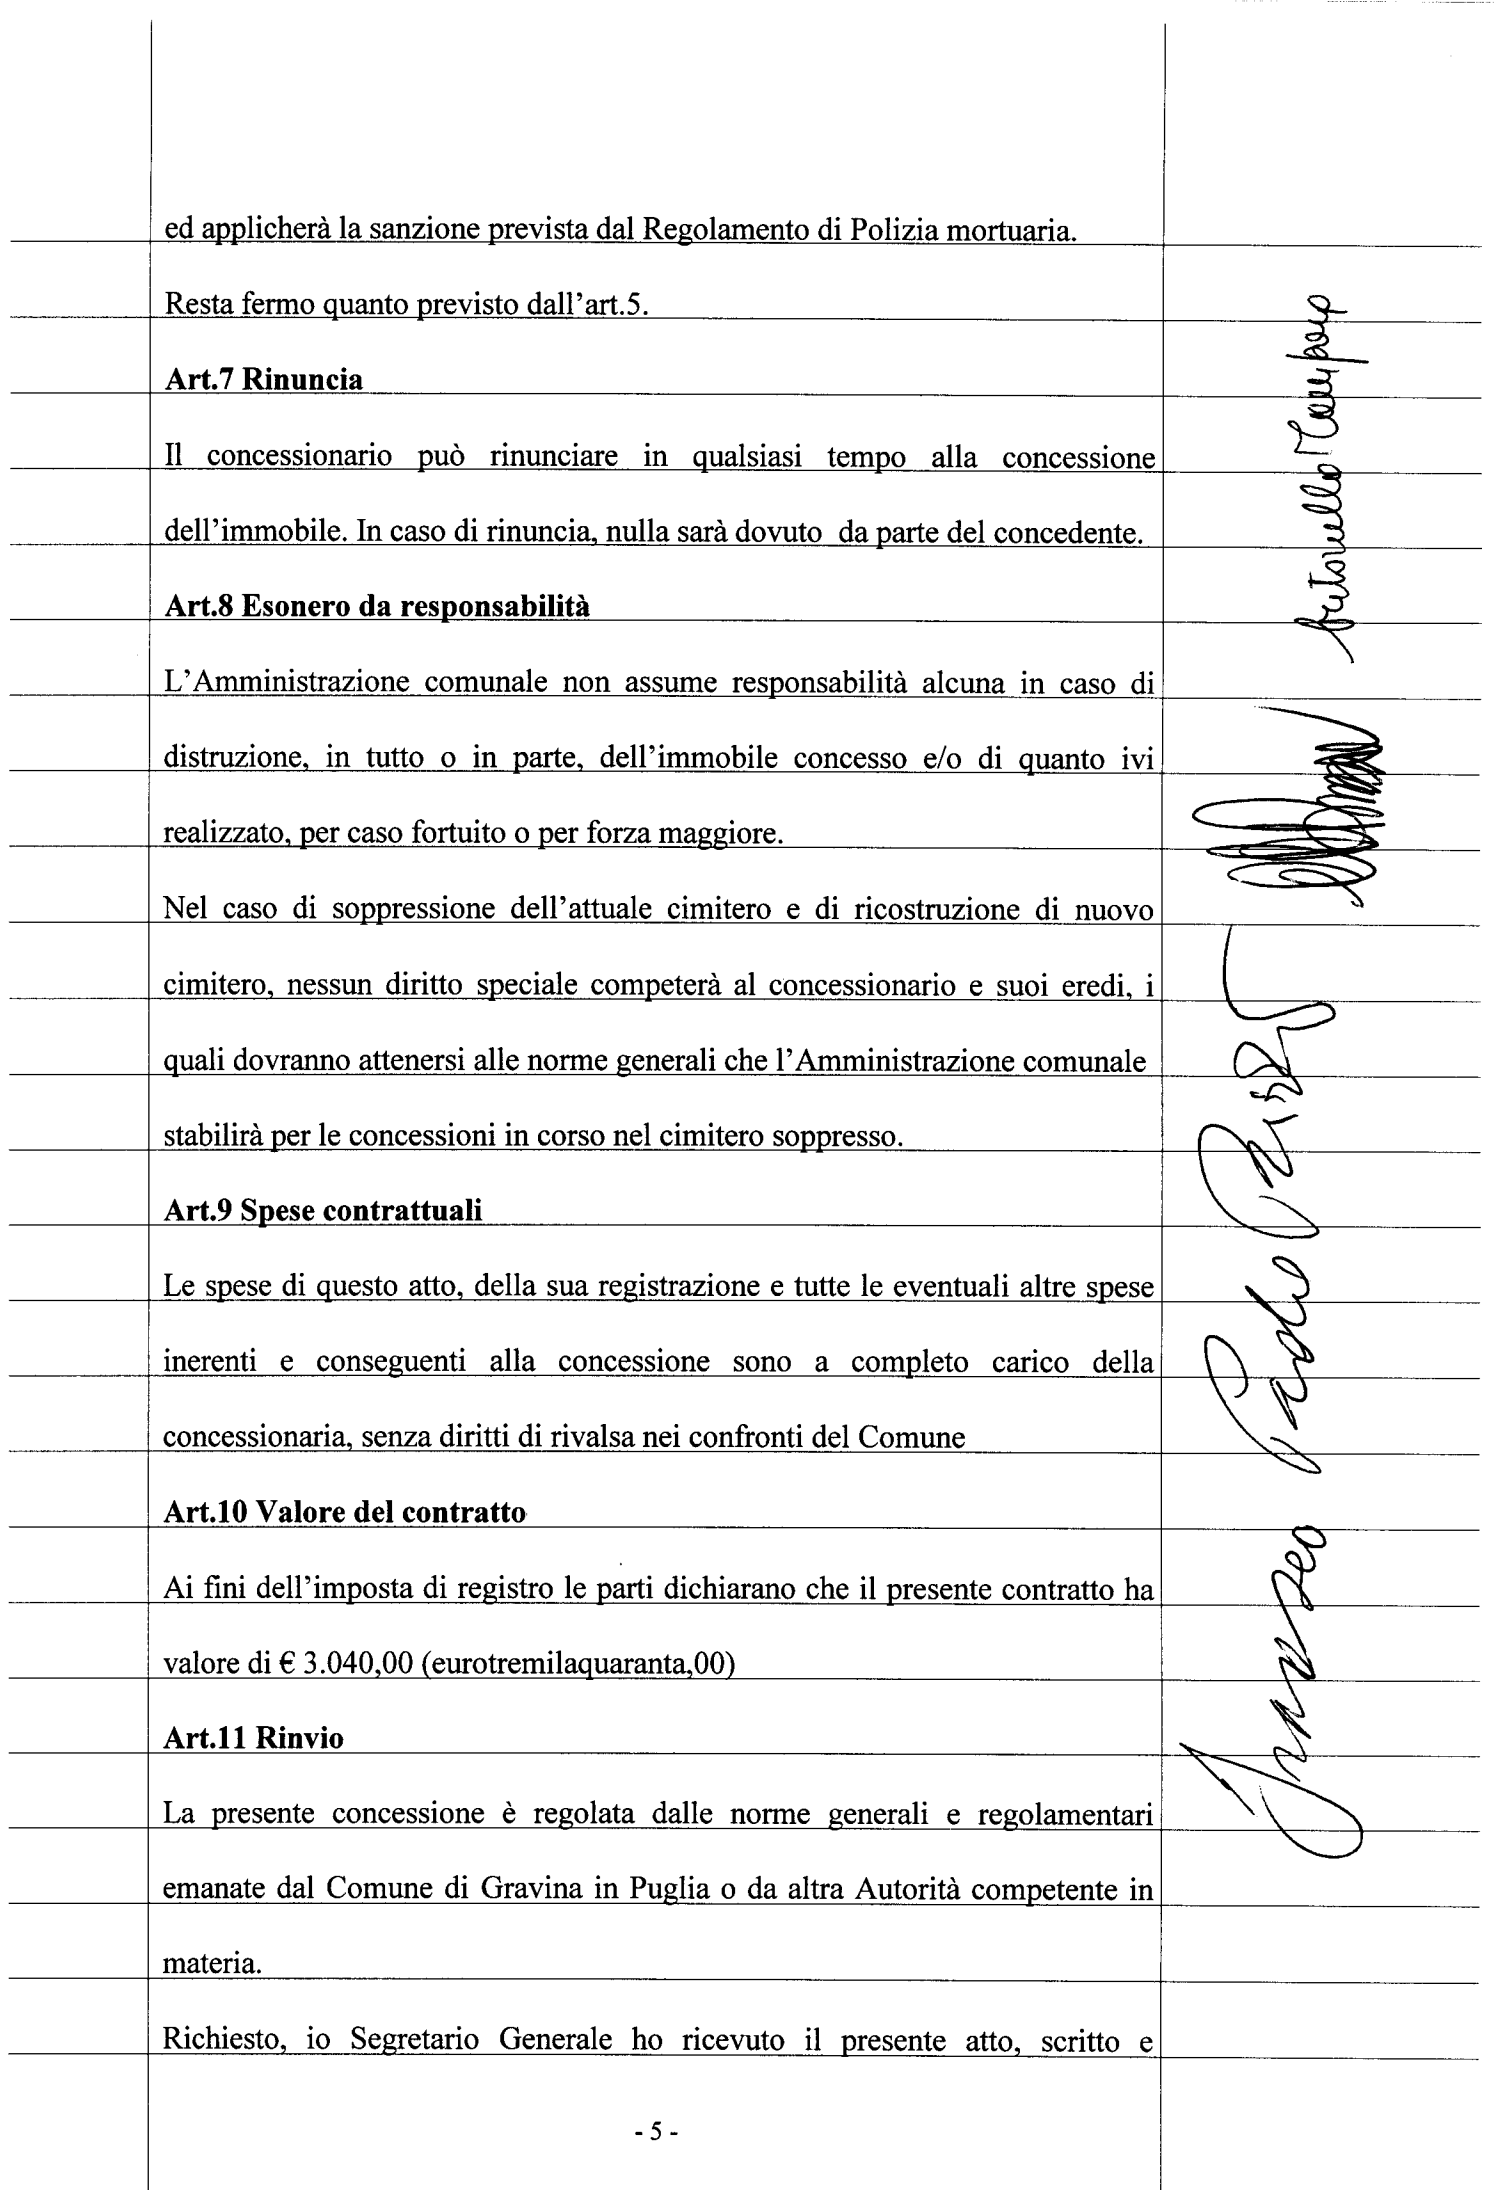 ed applicherà la sanzione prevista dal Regolamento di Polizia mortuaria.
Resta fermo quanto previsto dall'art.5.
Art.7 Rinuncia
Il concessionario può rinunciare in qualsiasi tempo alla concessione
dell'immobile. In caso di rinuncia, nulla sarà dovuto da parte del concedente.
Art.8 Esonero da responsabilità
L'Amministrazione comunale non assume responsabilità alcuna in caso di
distruzione, in tutto o in parte, dell'immobile concesso e/o di quanto ivi
realizzato, per caso fortuito o per forza maggiore.
Nel caso di soppressione dell'attuale cimitero e di ricostruzione di nuovo
cimitero, nessun diritto speciale competerà al concessionario e suoi eredi, i
quali dovranno attenersi alle norme generali che l'Amministrazione comunale
stabilirà per le concessioni in corso nel cimitero soppresso.
Art.9 Spese contrattuali
Le spese di questo atto, della sua registrazione e tutte le eventuali altre spese
inerenti e conseguenti alla concessione sono a completo carico della
concessionaria, senza diritti di rivalsa nei confronti del Comune
Art.10 Valore del contratto
Ai fini dell'imposta di registro le parti dichiarano che il presente contratto ha
valore di € 3.040,00 (eurotremilaquaranta,00)
Art.11 Rinvio
La presente concessione è regolata dalle norme generali e regolamentari
emanate dal Comune di Gravina in Puglia o da altra Autorità competente in
materia.
Richiesto, io Segretario Generale ho ricevuto il presente atto, scritto e
- 5 -